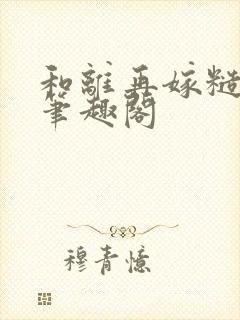 和離再嫁糙
筆趣閣
穆青憶